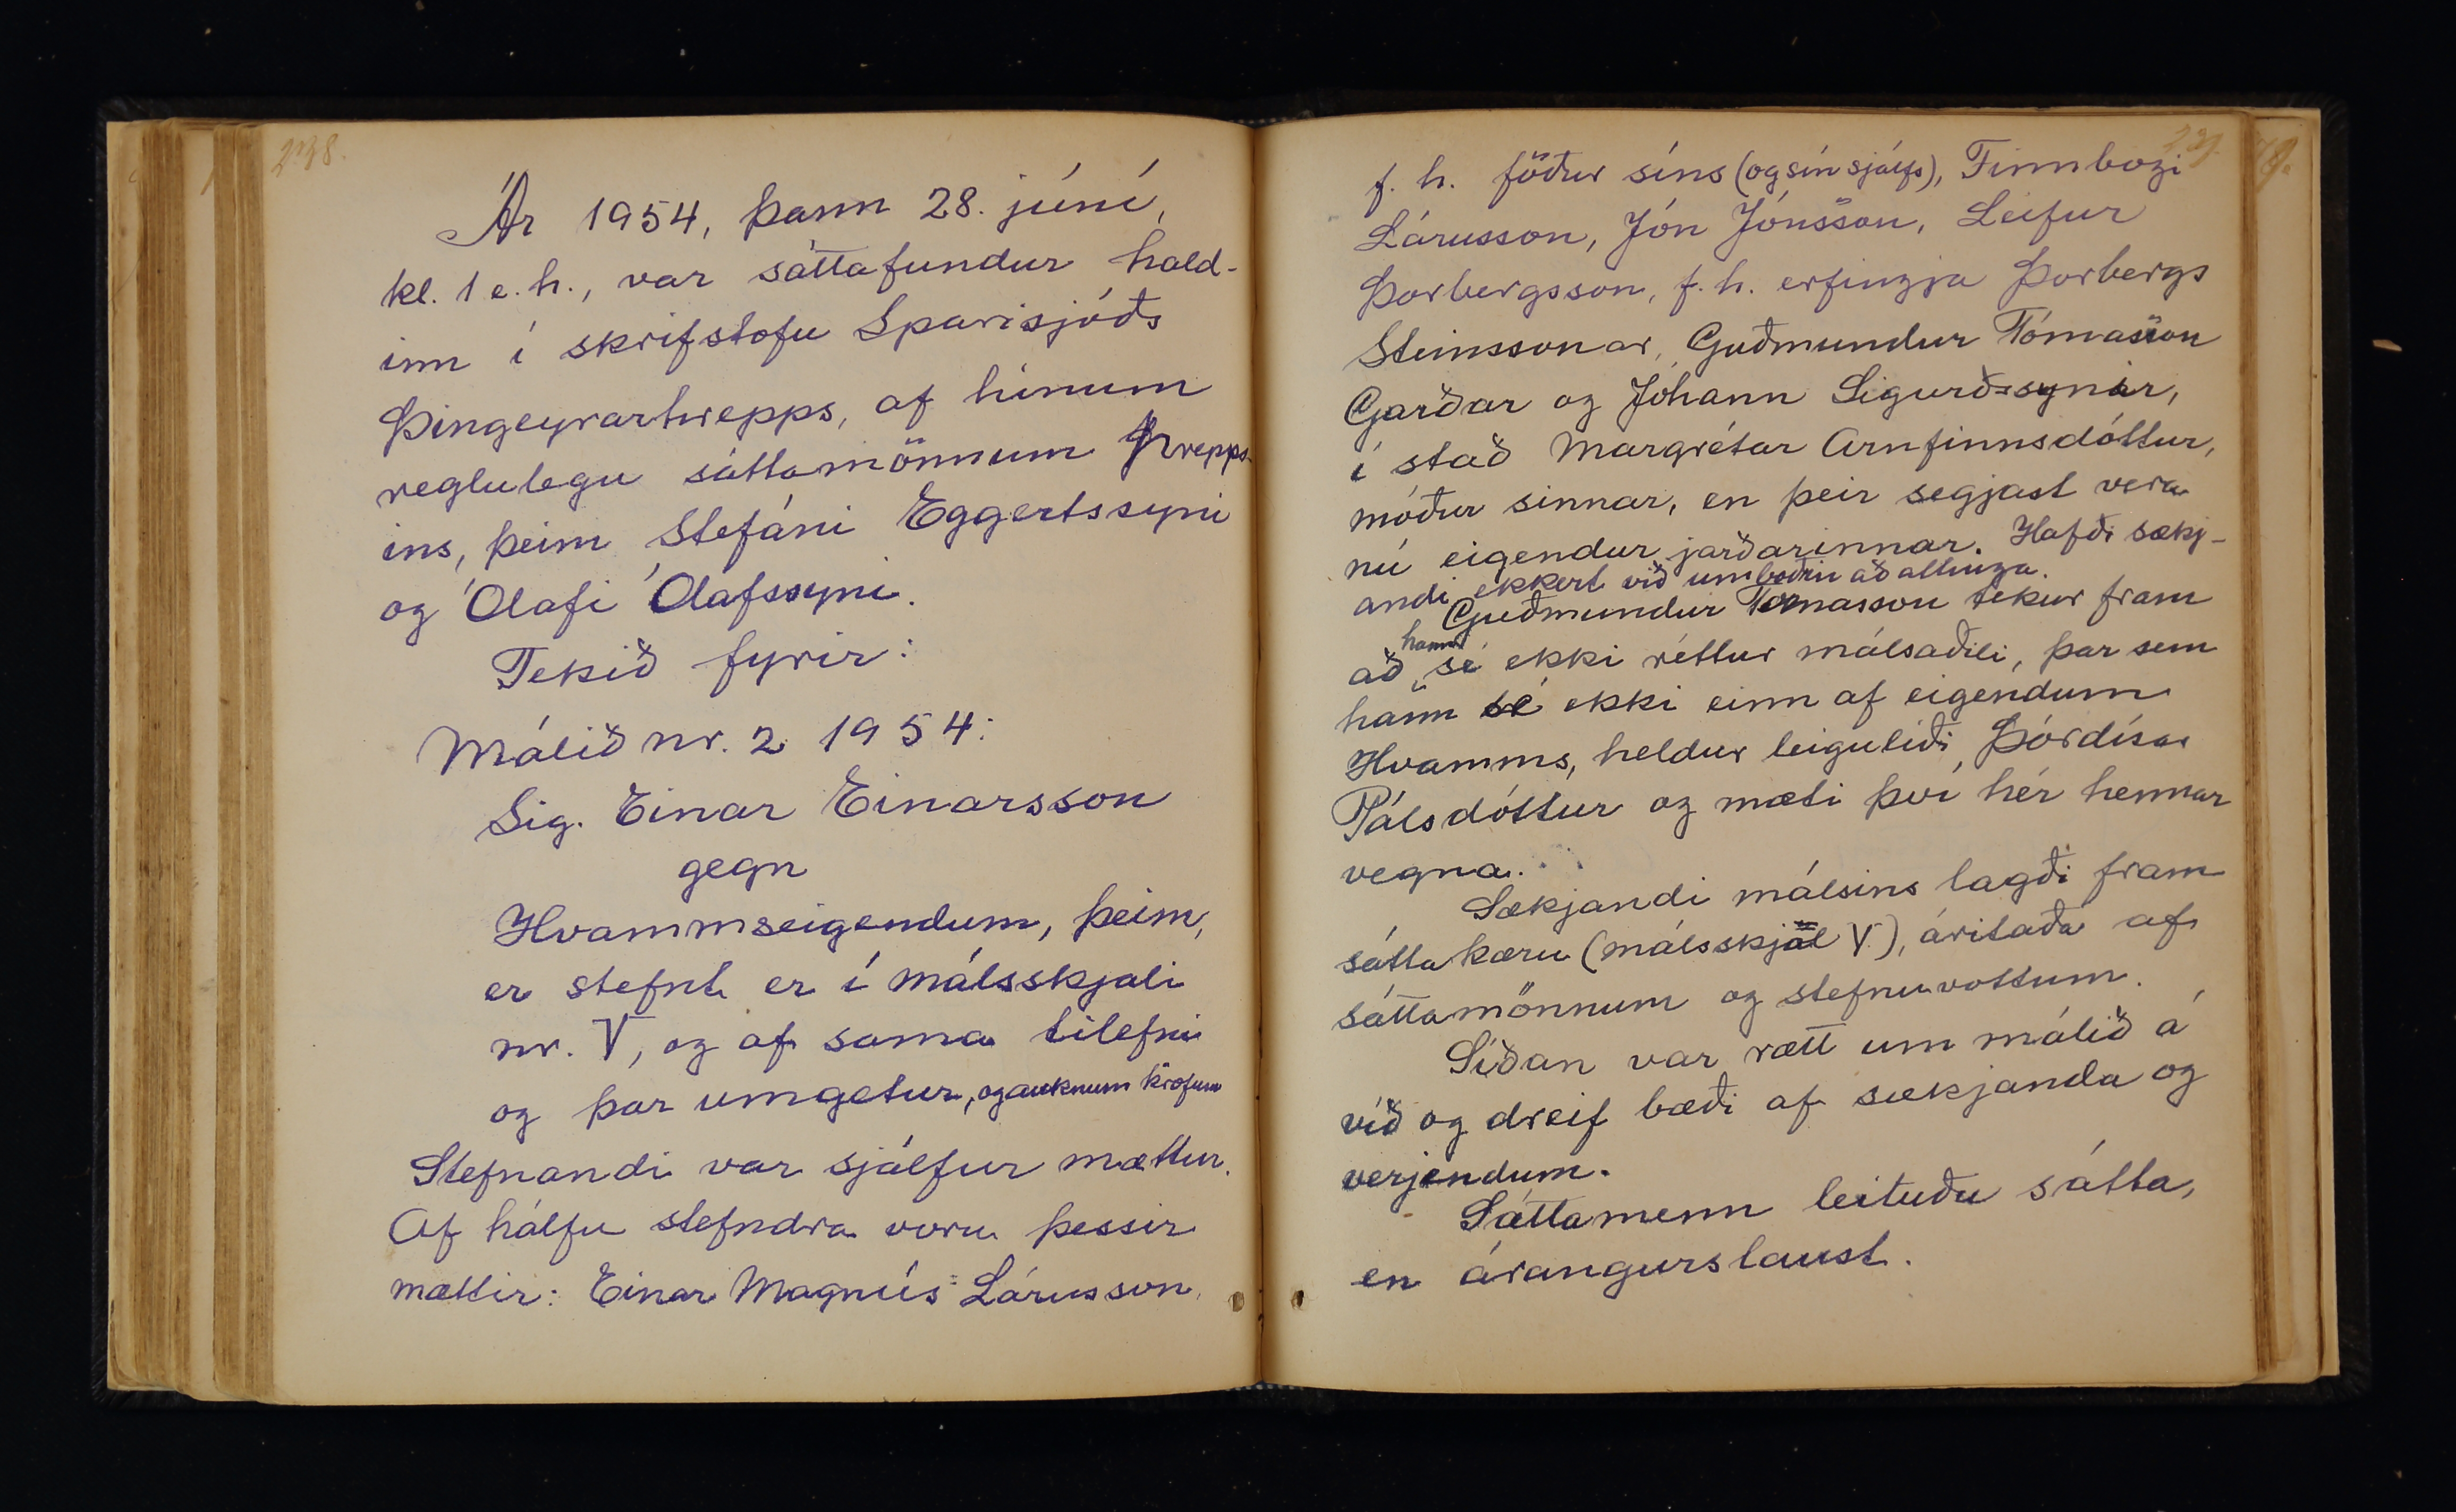 238.
Ár 1954, þann 28. júní,
kl. 1 e. h., var sáttafundur hald-
inn í skrifstofu Sparisjóðs
Þingeyrarhrepps, af hinum
reglulegu sáttamönnum hrepps-
ins, þeim Stefáni Eggertssyni
og Ólafi Ólafssyni.
Tekið fyrir:
Málið nr. 2 1954:
Sig. Einar Einarsson
gegn
Hvammseigendum, þeim,
er stefnt er í málsskjali
nr. V, og af sama tilefni
og þar umgetur, og auknum kröfum
Stefnandi var sjálfur mættur.
Af hálfu stefndra voru þessir
mættir: Einar Magnús Lárusson,
239.
f. h. föður síns (og sín sjálfs), Finnbogi
Lárusson, Jón Jónsson, Leifur
Þorbergsson, f. h. erfingja Þorbergs
Steinssonar, Guðmundur Tómasson
Garðar og Jóhann Sigurðssynir,
í stað Margrétar Arnfinnsdóttur,
móður sinnar, en þeir segjast vera
nú eigendur jarðarinnar. Hafði sækj-
andi ekkert við umboðin að athuga.
Guðmundur Tómasson tekur fram
að hann sé ekki réttur málsaðili, þar sem
hann sé ekki einn af eigendum
Hvamms, heldur leiguliði Þórdísar
Pálsdóttur og mæti því hér hennar
vegna.
Sækjandi málsins lagði fram
sáttakæru (málsskjal V), áritaða af
sáttamönnum og stefnuvottum.
Síðan var rætt um málið á
víð og dreif bæði af sækjanda og
verjendum.
Sáttamenn leituðu sátta,
en árangurslaust.